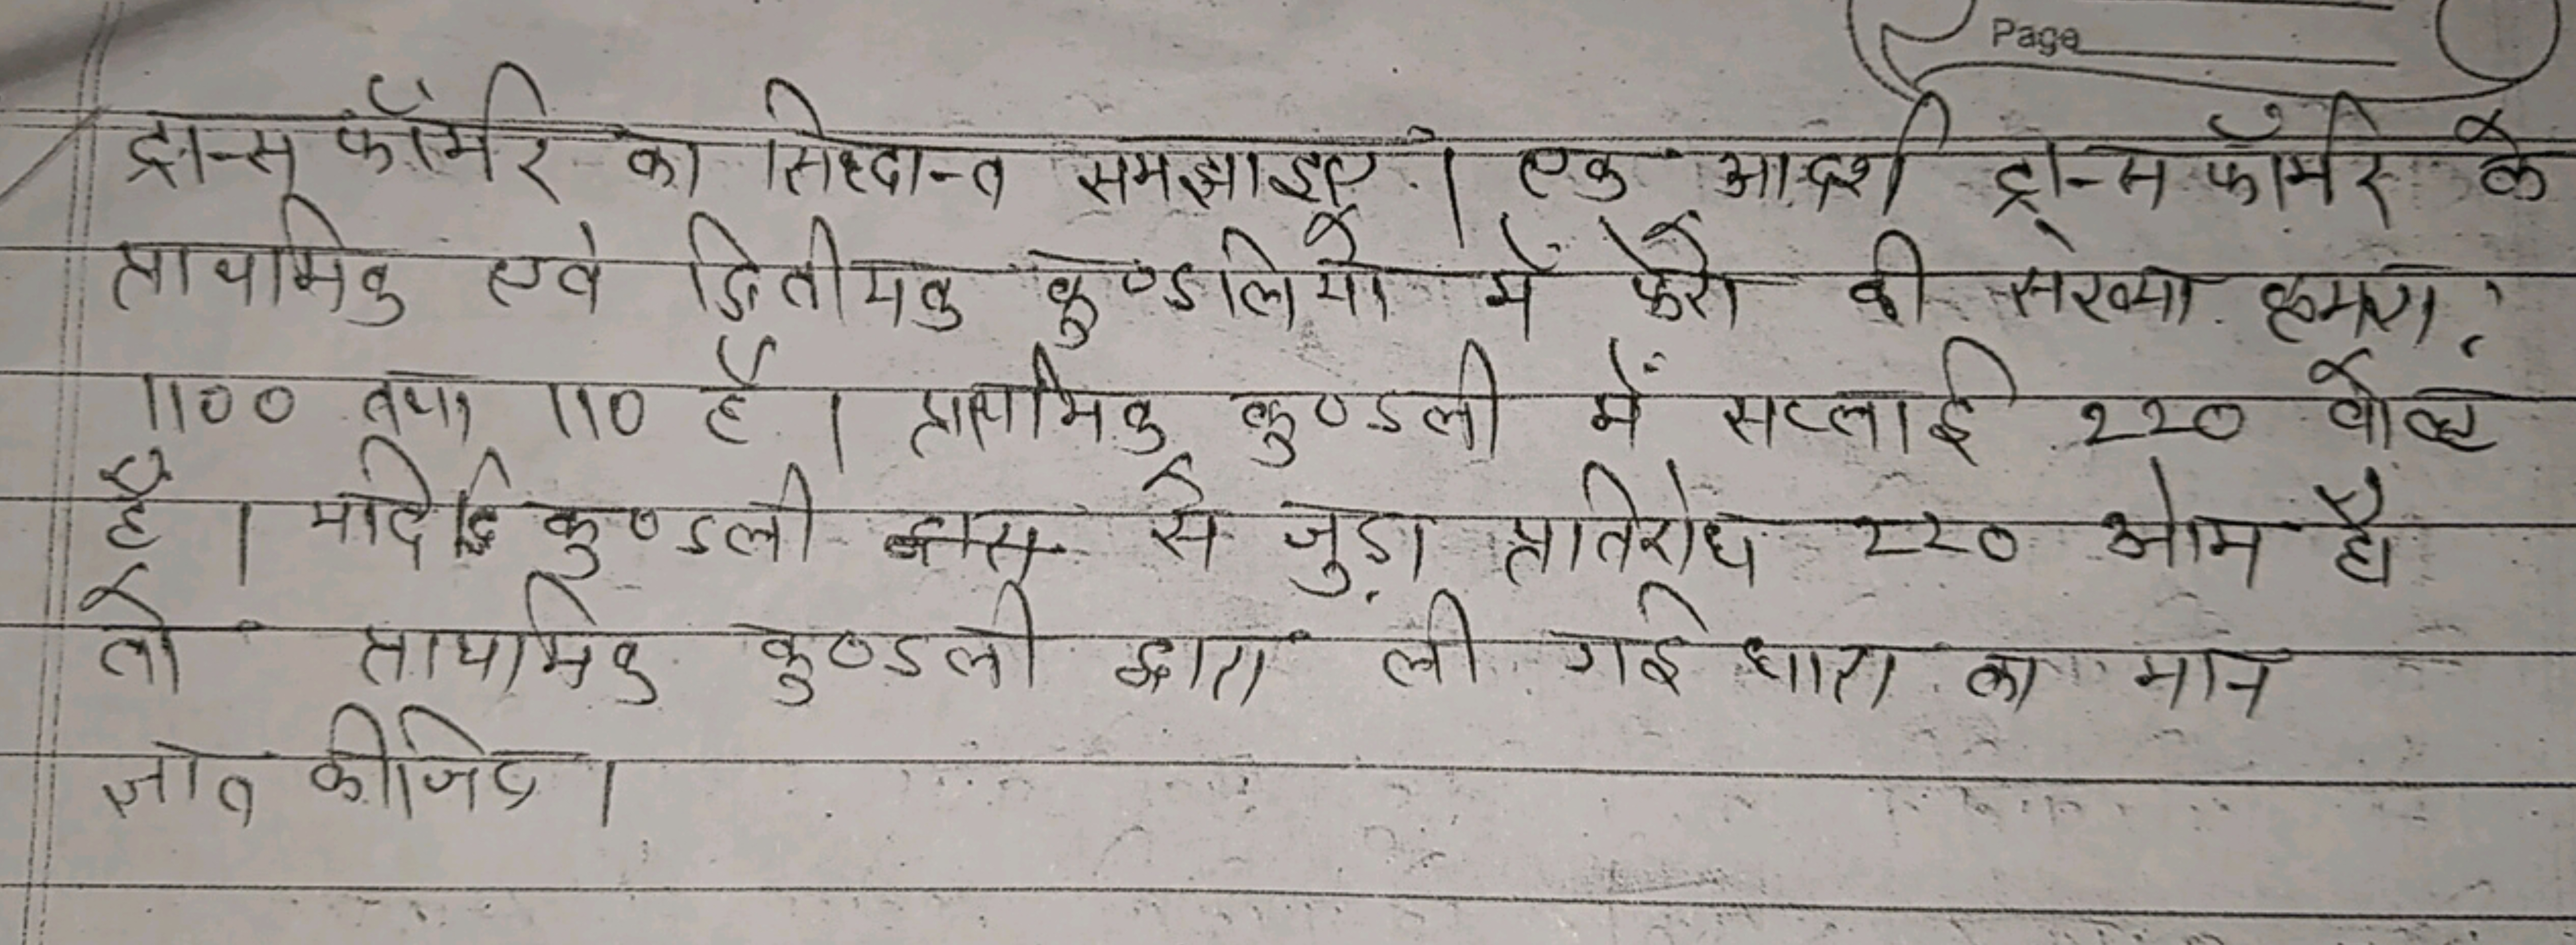 Page
ट्रान्सफॉर्मर का सिध्दान्त समझाइए । एक आदर्श ट्रान्सफॉर्मर के
प्राथमिक एवं द्वितीयक कुण्डलियों में फेरों की संख्या क्रमश:
1100 तथा 110 है । प्राथमिक कुण्डली में सप्लाई 220 वोल्ट
है । यदि द्वि कुण्डली से जुड़ा प्रतिरोध 220 ओम है
तो प्राथमिक कुण्डली द्वारा ली गई धारा का मान
ज्ञात कीजिए ।